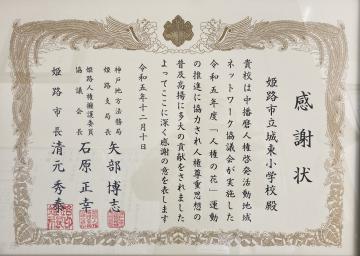 感謝状
姫路市立城東小学校殿
貴校は中播磨人権啓発活動地域
ネットワーク協議会が実施した
令和五年度「人権の花」運動
の推進に協力され人権尊重思想の
普及高揚に多大の貢献をされました
よってここに深く感謝の意を表します
令和五年十二月十日
神戸地方法務局
姫路支局長 矢部博志
姫路人権擁護委員
協議会長 石原正幸
姫路市長 清元秀泰